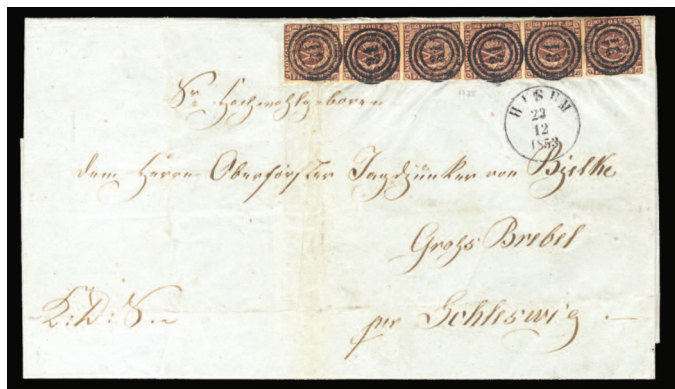 HUSUM
22
12
1853
Sr Hochwohlgeboren
dem Herrn Oberförster Jagdjunker von Bjelke
Grohs Brebel
K: D: S.
per Schleswig